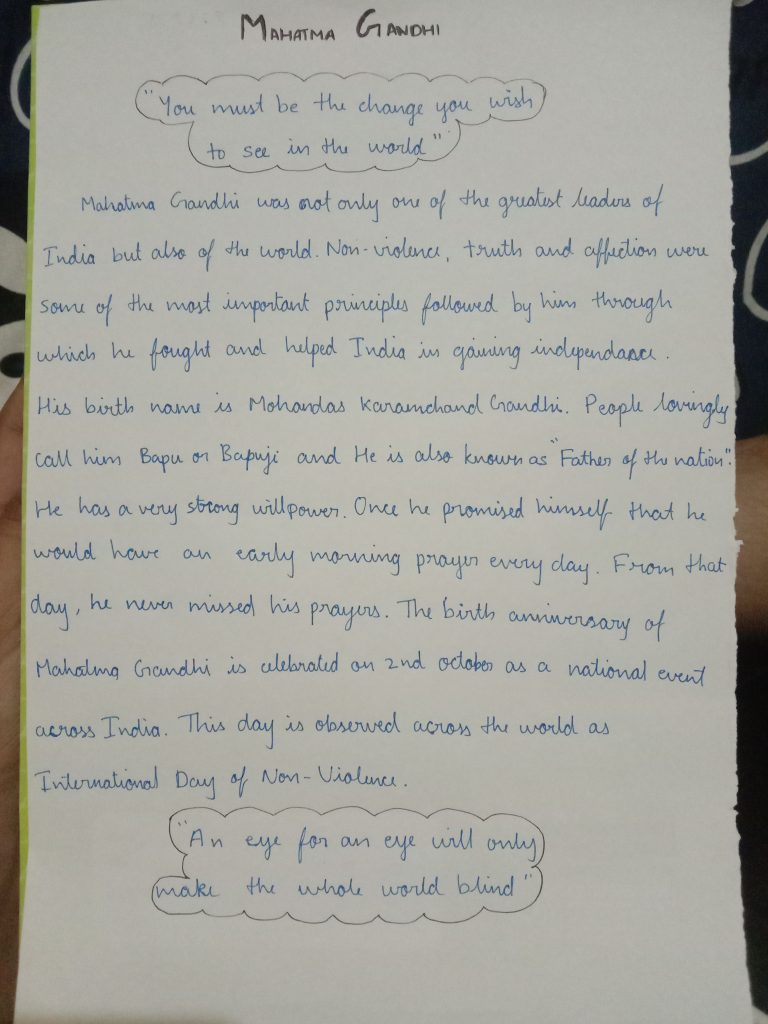 MAHATMA GANDHI
"You must be the change you wish
to see in the world"
Mahatma Gandhi was not only one of the greatest leaders of
India but also of the world. Non-violence, truth and affection were
some of the most important principles followed by him through
which he fought and helped India in gaining independance.
His birth name is Mohandas Karamchand Gandhi. People lovingly
call him Bapu or Bapuji and He is also known as "Father of the nation".
He has a very strong willpower. Once he promised himself that he
would have an early morning prayer every day. From that
day, he never missed his prayers. The birth anniversary of
Mahatma Gandhi is celebrated on 2nd october as a national event
across India. This day is observed across the world as
International Day of Non-Violence.
"An eye for an eye will only
make the whole world blind"